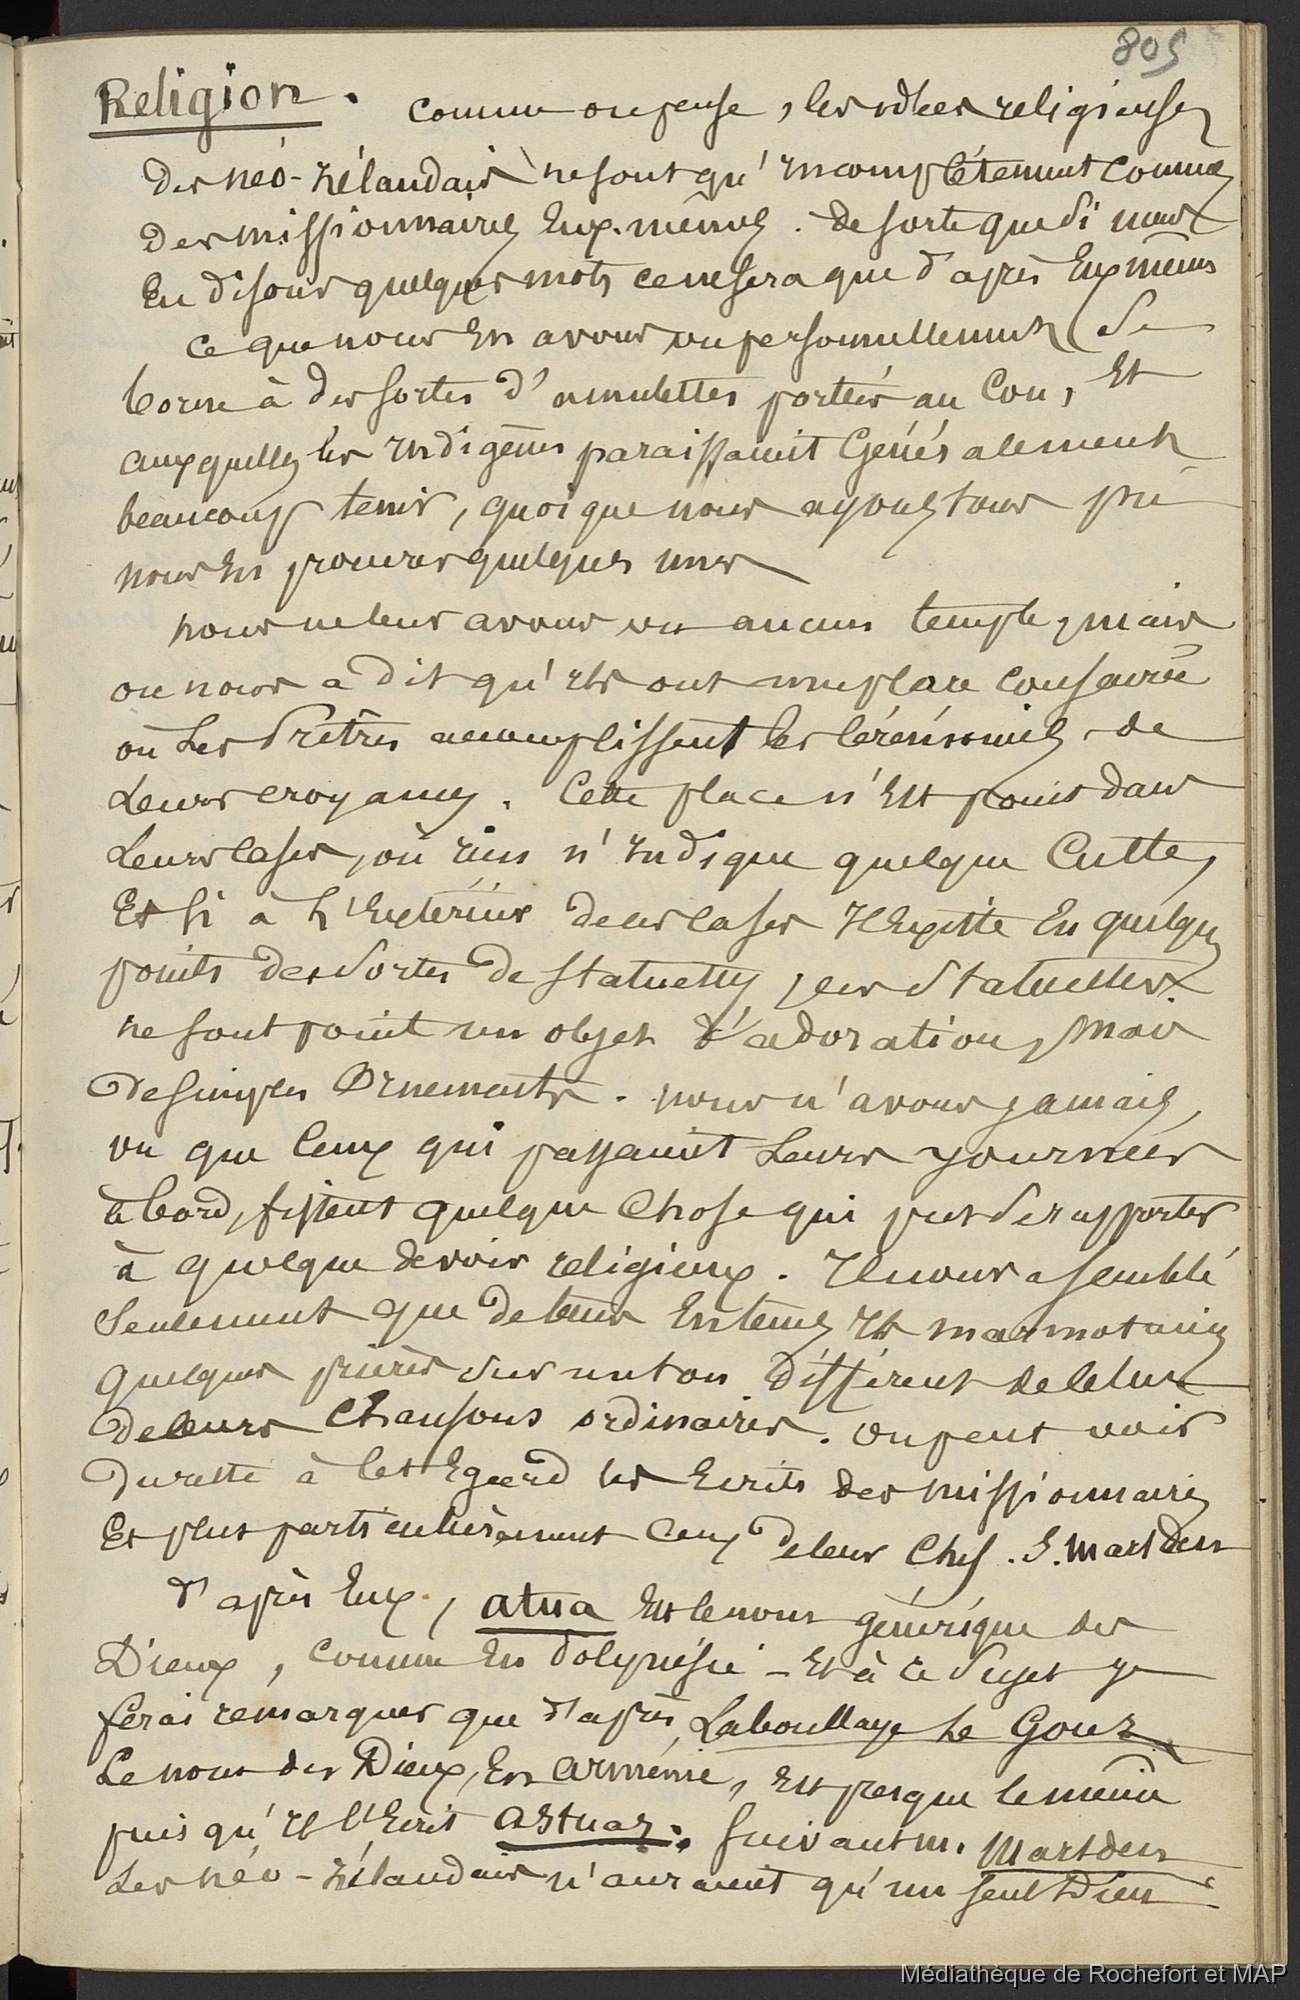 805
Religion. comme on pense, les idées religieuses
des néo-zélandais ne sont qu'incomplétement connues
des missionnaires Eux-mêmes. de sorte que si nous
En disons quelques mots ce ne sera que d'après Eux mêmes
ce que nous En avons vu personnellement se
borne à des sortes d'amulettes portées au Cou, Et
auxquelles les Indigènes paraissaient Généralement
beaucoup tenir, quoique nous ayons tous pu
nous En procurer quelques unes
nous ne leur avons vu aucun temple, mais
on nous a dit qu'ils ont une place consacrée
où Les Prêtres accomplissent les Cérémonies de
Leurs croyances. Cette place n'Est point dans
Leurs cases, où rien n'Indique quelque Culte,
Et si à l'Extérieur de ces cases Il Existe En quelques
points des sortes de statuettes, ces statuettes
ne sont point un objet d'adoration, mais
de simples Ornements. nous n'avons jamais
vu que Ceux qui passaient Leurs journées
à bord, fissent quelque Chose qui put se rapporter
à quelque devoir religieux. Il nous a semblé
Seulement que de tems En tems Ils marmotaient
quelques prières sur un ton différent de celui
de leurs Chansons ordinaires. On peut voir
du reste à cet Egard les Ecrits des missionnaires
Et plus particulièrement Ceux de leur Chef. S. Marsden
d'après Eux, atua Est le nom générique des
Dieux, comme En Polynésie - Et à ce Sujet je
ferai remarquer que d'après Laboullaye Le Gouz
Le nom des Dieux, En arménie, Est presque le même
puisqu'Il l'Ecrit astuaz. Suivant m. Marsden
Les néo-zélandais n'auraient qu'un seul Dieu
Médiathèque de Rochefort et MAP